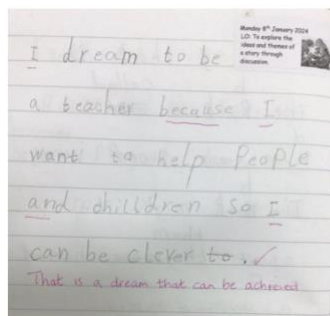 Monday 8th January 2024
LO: To explore the
ideas and themes of
a story through
discussion.
I dream to be
a teacher because I
want to help People
and chilldren so I
can be clever to.
That is a dream that can be achieved